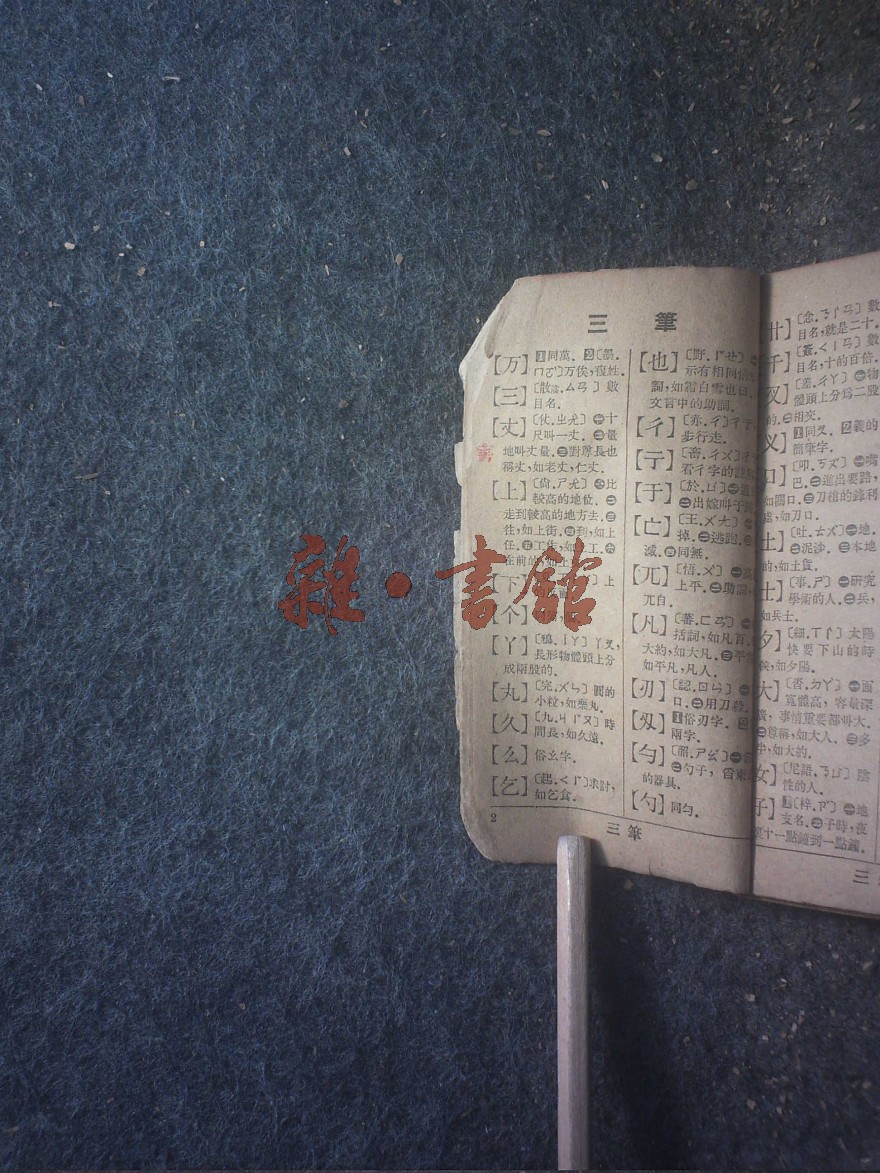 三筆
【万】1同萬.2〔墨.
ㄇㄛˋ〕万俟,複姓.
【三】〔散.ㄙㄢ〕數
目名.
【丈】〔仗.ㄓㄤ〕㊀十
尺叫一丈.㊁量
地叫丈量.㊂對尊長也
稱丈,如老丈,仁丈.
【上】〔尙.ㄕㄤ〕㊀比
較高的地位.㊁
走到較高的地方去.㊂
往,如上街.㊃到,如上
任.㊄工作,如上工.㊅
在前的,如上
【下】上
【个】
【丫】〔鴉.ㄧㄚ〕丫叉,
長形物體頭上分
成兩股的.
【丸】〔完.ㄨㄢ〕圓的
小粒,如藥丸.
【久】〔九.ㄐㄧㄡ〕時
間長,如久遠.
【么】俗幺字.
【乞】〔起.ㄑㄧ〕求討,
如乞食.
2
【也】〔野.ㄧㄝ〕㊀
示有相同
詞,如霜白雪也白.
文言中的助詞.
【彳】〔赤.ㄔ〕彳亍,
步行走.
【亍】〔畜.ㄔㄨ〕彳亍
看彳字的註
【于】〔於.ㄩ〕㊀
㊁出嫁叫于
【亡】〔王.ㄨㄤ〕
掉.㊁逃跑.
滅.㊃同無.
【兀】〔悟.ㄨ〕㊀高
上平.㊁助詞,
兀自.
【凡】〔蕃.ㄈㄢ〕㊀
括詞,如凡百.
大約,如大凡.㊂平
如平凡,凡人.
【刃】〔認.ㄖㄣ〕㊀
口.㊁用刀殺.
【刄】1俗刃字.2
兩字.
【勻】
㊁勺子,舀東
的器具.
【勺】同勻.
三筆
廿】〔念.ㄋㄧㄢ〕數
目名,就是二十.
千】〔簽.ㄑㄧㄢ〕數
目名,十的百倍.
叉】〔差.ㄔㄚ〕㊀物
體頭上分爲二股
的.㊁相交.
义】1同叉.2義的
簡筆字.
口】〔叩.ㄎㄡ〕㊀嘴
巴.㊁進出要路,
如關口.㊂刀槍的鋒利
處,如刀口.
土】〔吐.ㄊㄨ〕㊀地.
㊁泥沙.㊂本地
的,如土貨.
士】〔事.ㄕ〕㊀研究
學術的人.㊁兵,
如兵士.
夕】〔細.ㄒㄧ〕太陽
快要下山的時
候,如夕陽.
大】〔杳.ㄉㄚ〕㊀面
寬體高,容量深
廣,事情重要都叫大.
㊁尊稱,如大人.㊂多
中,如大約.
女】〔尼語.ㄋㄩ〕陰
性的人.
子】1〔梓.ㄗ〕㊀地
支名.㊁子時,夜
裏十一點鐘到一點鐘.
三
雜·書館